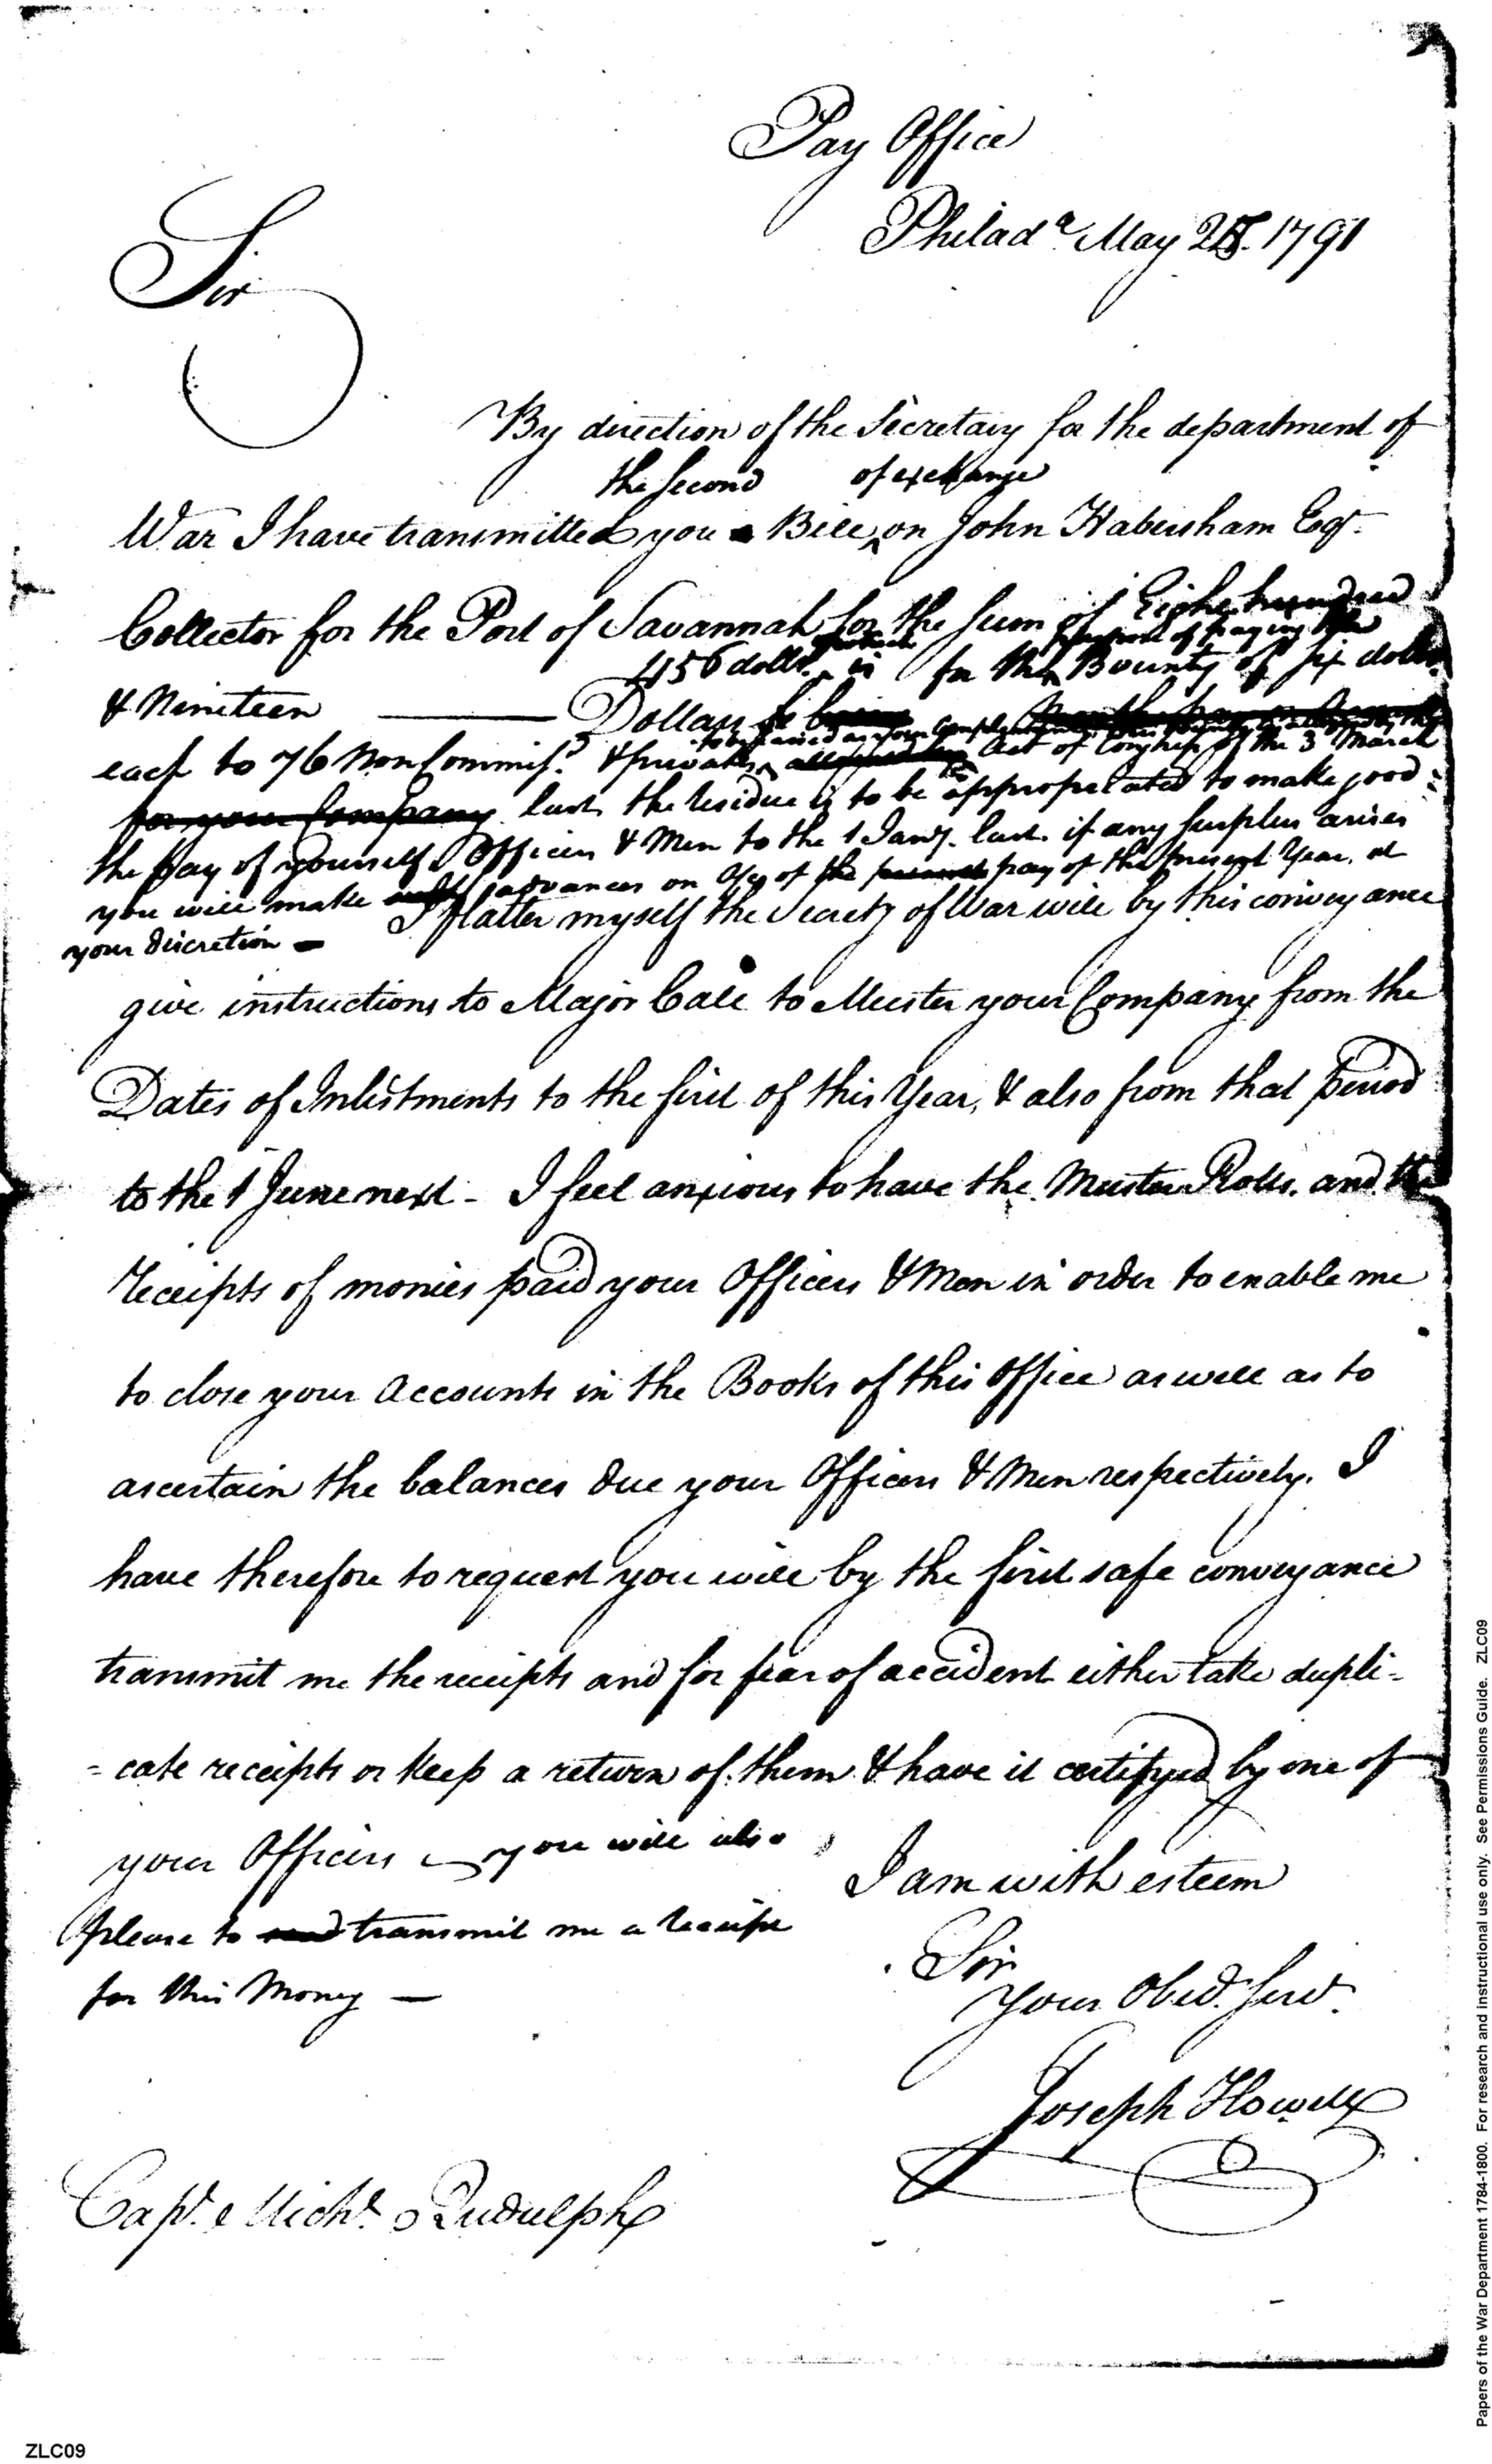 Pay Office
Philada May 1791
Sir
By direction of the Secretary for the department of
the second of exchange
War I have transmitted you Bill on John Habersham Esqr.
Collector for the Port of Savannah for the Sum of Eight hundred
purpose of paying the
456 dolls. is for the Bounty of six dolls
& Nineteen Dollars
to be raised as your Complement
each to 76 Non Commissd. & privates Act of Congress of the 3 March
for your Company last. the residue is to be appropriated to make good
the pay of yourself Officers & Men to the 1 Jany. last. if any surplus arises
you will make advances on Acct of the pay of the present Year, at
your discretion - I flatter myself the Secrety of War will by this conveyance
give instructions to Major Call to Muster your Company from the
Dates of Inlistments to the first of this Year, & also from that period
to the 1 June next - I feel anxious to have the Muster Rolls. and the
receipts of monies paid your Officers & Men in order to enable me
to close your Accounts in the Books of this Office as well as to
ascertain the balances due your Officers & Men respectively. I
have therefore to request you will by the first safe conveyance
transmit me the receipts and for fear of accident either take dupli-
-cate receipts or keep a return of them & have it certifyed by one of
your Officers - you will also
please to send transmit me a receipt
for this Money -
I am with esteem
Sir
Your Obed. Servt.
Joseph Howell
Capt. Michl. Rudulph
ZLC09
Papers of the War Department 1784-1800. For research and instructional use only. See Permissions Guide. ZLC09